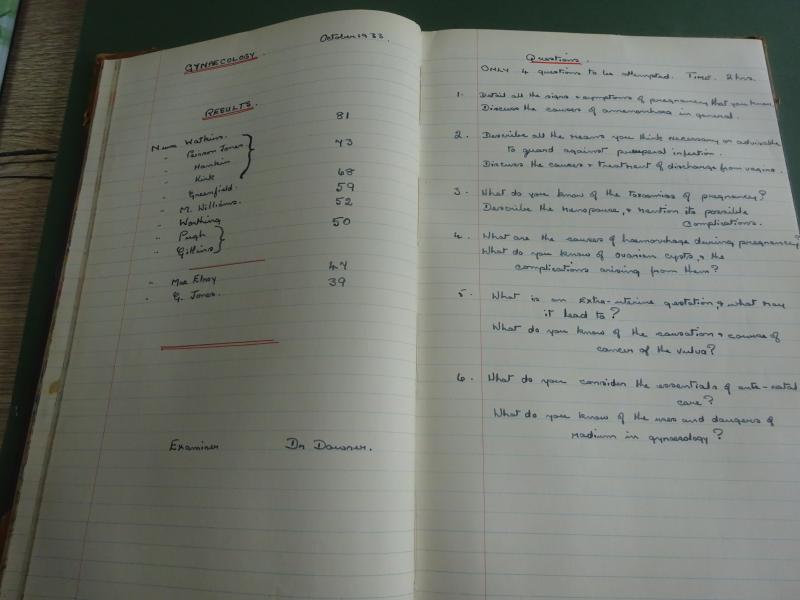 October 1933.
GYNAECOLOGY.
RESULTS.
81
Nurse Watkins.
73
" Jones
" Hankin
" Kirk
68
" Greenfield.
59
" M. Williams.
52
" Worthing
50
" Pugh
" Gittins
47
" Mac Elroy
39
" G. Jones.
Examiner Dr
Questions.
ONLY 4 questions to be attempted. Time. 2 hrs.
1. Detail all the signs & symptoms of pregnancy that you know
Discuss the causes of amenorrhoea in general.
2. Describe all the means you think necessary or advisable
to guard against puerperal infection.
Discuss the causes & treatment of discharge from vagina.
3. What do you know of the toxaemias of pregnancy?
Describe the menopause, & mention its possible
complications.
4. What are the causes of haemorrhage during pregnancy?
What do you know of ovarian cysts, & the
complications arising from them?
5. What is an Extra-uterine gestation, & what may
it lead to?
What do you know of the causation & course of
cancer of the vulva?
6. What do you consider the essentials of ante-natal
care?
What do you know of the uses and dangers of
radium in gynaecology?